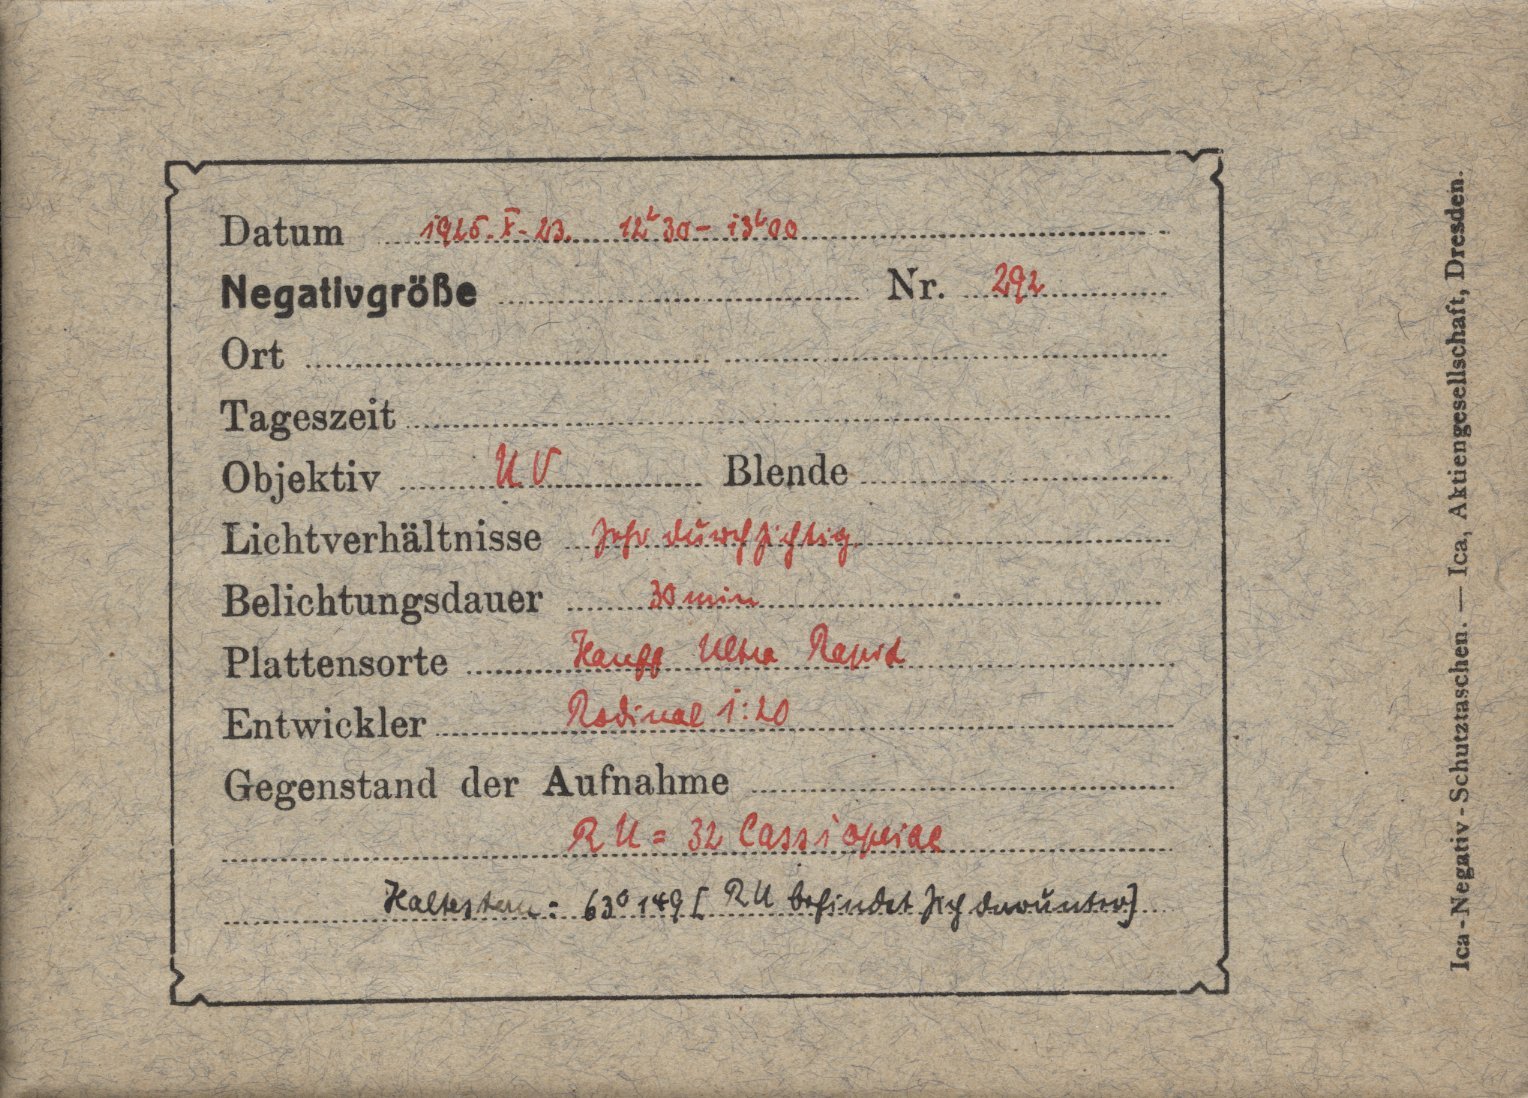 Datum 1925. X. 23. 12h 30 – 13h 00
Negativgröße Nr. 292
Ort
Tageszeit
Objektiv UV Blende
Lichtverhältnisse sehr durchsichtig
Belichtungsdauer 30 min
Plattensorte Hauff Ultra Rapid
Entwickler Rodinal 1:20
Gegenstand der Aufnahme
RU = 32 Cassiopeiae
Haltestern: 63° 149 [RU befindet sich darunter]
Ica-Negativ-Schutztaschen. — Ica, Aktiengesellschaft, Dresden.